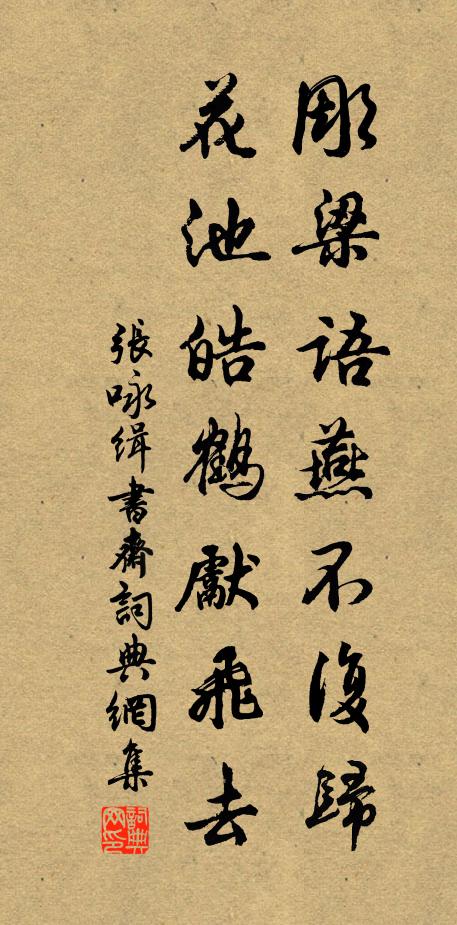 彫梁語燕不復歸
花池皓鶴獻飛去
張咏緝書齋詞典網集
詞典网印